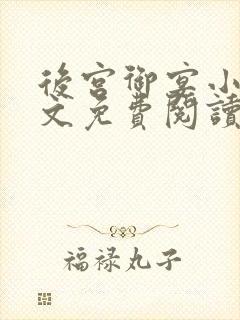 後宮御宴小
文免費閱讀
福禄丸子